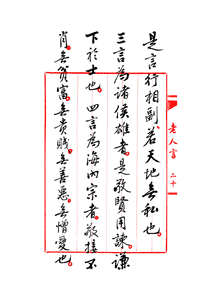 是言行相副若天地無私也
三言為諸侯雄者是敬賢用諫謙
下於士也四言為海內宗者敬接不
肖無貧富無貴賤無善惡無憎愛也
老人言 二十